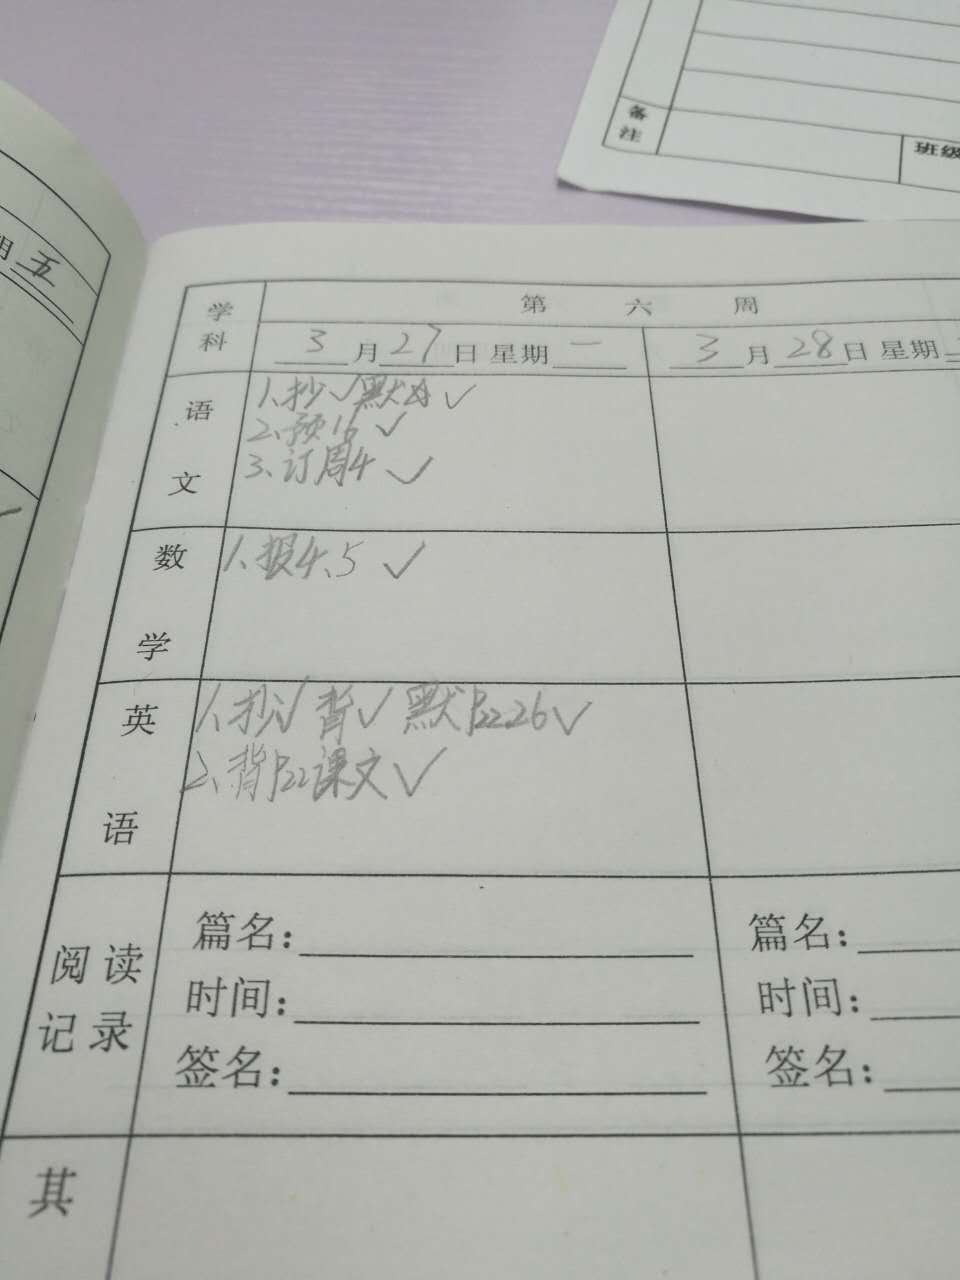 备注
班级
期五
学科
第 六 周
3月27日星期一
3月28日星期
语文
1、抄√默 √
2、预16 √
3、订周4 √
数学
1、报4、5 √
英语
1、抄√ 背√ 默P22.26√
2、背P22课文√
阅读记录
篇名：
时间：
签名：
篇名：
时间：
签名：
其